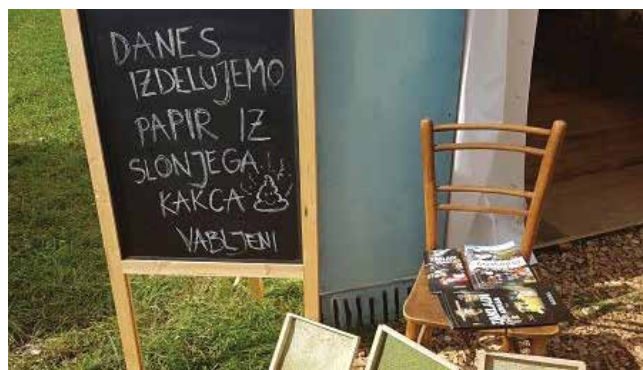 DANES
IZDELUJEMO
PAPIR IZ
SLONJEGA
KAKCA
VABLJENI